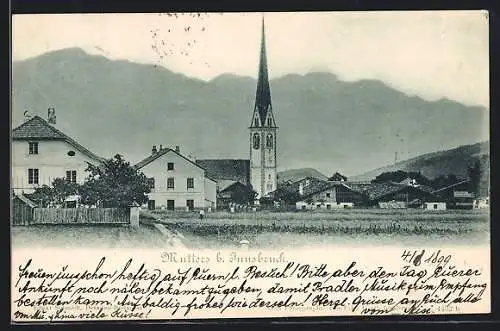 Mutters b. Innsbruck.
4/8 1899
Freuen uns schon heftig auf Kuen u. Besuch! Bitte aber den Tag Eurer
Ankunft noch näher bekanntzugeben, damit Pradler Musik from Empfang
bestellen kann. Auf baldig frohes Wiedersehen! Herzl. Grüsse an Euch alle
von
viele Küsse!